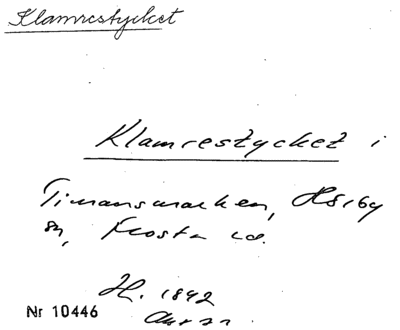 Klamrestycket
Klamrestycket i
Timansmarken, Hörby
sn, Frosta hd.
H. 1842
Nr 10446